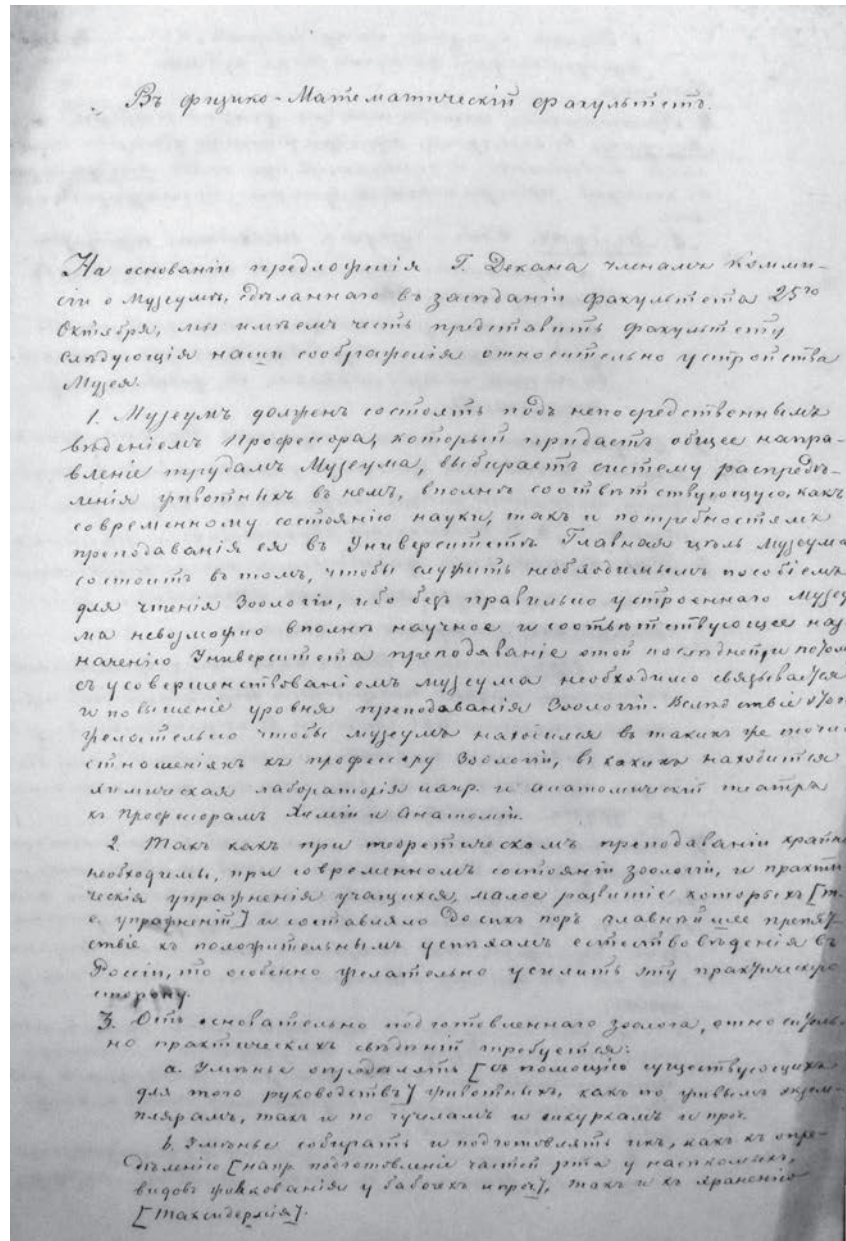 Въ физико-Математическій факультетъ.
На основаніи предложенія Г. Декана членамъ Комми-
сіи о Музеумѣ, сдѣланнаго въ засѣданіи факультета 25го
Октября, мы имѣемъ честь представить факультету
слѣдующія наши соображенія относительно устройства
Музея.
1. Музеумъ долженъ состоять подъ непосредственнымъ
вѣденіемъ Профессора, который придастъ общее напра-
вленіе трудамъ Музеума, выбираетъ систему распредѣ-
ленія животныхъ въ немъ, вполнѣ соотвѣтствующую, какъ
современному состоянію науки, такъ и потребностямъ
преподаванія ея въ Университетѣ. Главная цѣль Музеума
состоитъ въ томъ, чтобы служить необходимымъ пособіемъ
для чтенія Зоологіи, ибо безъ правильно устроеннаго Музеу
ма невозможно вполнѣ научное и соотвѣтствующее наз
наченію Университета преподаваніе этой послѣдней; и потому
съ усовершенствованіемъ музеума необходимо связывается
и повышеніе уровня преподаванія Зоологіи. Вслѣдствіе этого
желательно чтобы музеумъ находился въ такихъ же точно
отношеніяхъ къ профессору Зоологіи, въ какихъ находится
химическая лабораторія напр. и анатомическій театръ
къ Профессорамъ Химіи и Анатоміи.
2. Такъ какъ при теоретическомъ преподаваніи крайне
необходимы, при современномъ состояніи зоологіи, и практи
ческія упражненія учащихся, малое развитіе которыхъ [т.
е. упражненій] и составляло до сихъ поръ главнѣйшее препят
ствіе къ положительнымъ успѣхамъ естествовѣденія въ
Россіи, то особенно желательно усилить эту практическую
сторону.
3. Отъ основательно подготовленнаго зоолога, относитель
но практическихъ свѣдѣній требуется:
a. Умѣнье опредѣлять [съ помощію существующихъ
для того руководствъ] животныхъ, какъ по живымъ экзем-
плярамъ, такъ и по чучеламъ и шкуркамъ и проч.
b. Умѣнье собирать и подготовлять ихъ, какъ къ опре-
дѣленію [напр. подготовленіе частей рта у насѣкомыхъ,
видовъ жилкованія у бабочекъ и проч], такъ и къ храненію
[Таксидермія].